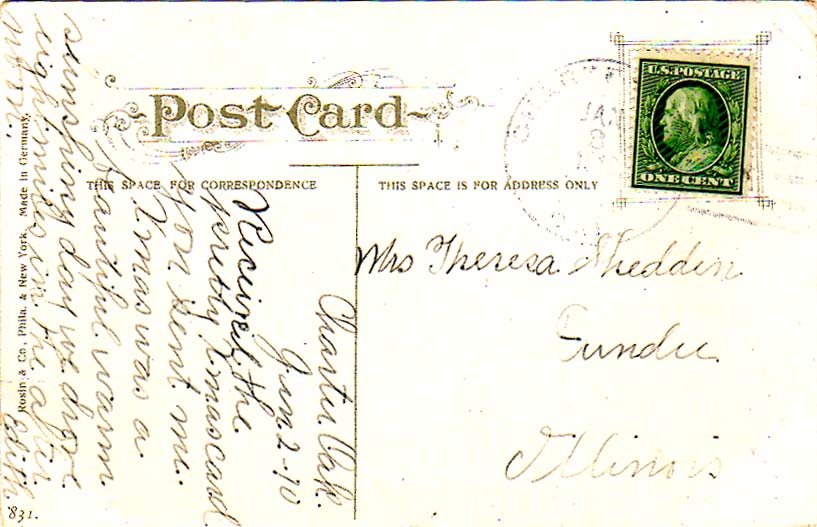 Post Card
THIS SPACE FOR CORRESPONDENCE
THIS SPACE IS FOR ADDRESS ONLY
U.S. POSTAGE
ONE CENT
JAN
Mrs Theresa Shedden
Dundee
Illinois
Charter Oak.
Jan 2-10
Received the
pretty Xmas card
you sent me.
Xmas was a
beautiful warm
sunshiny day we drove
eight miles in the after
noon.
Edith
Rosin & Co., Phila. & New York. Made in Germany.
831.